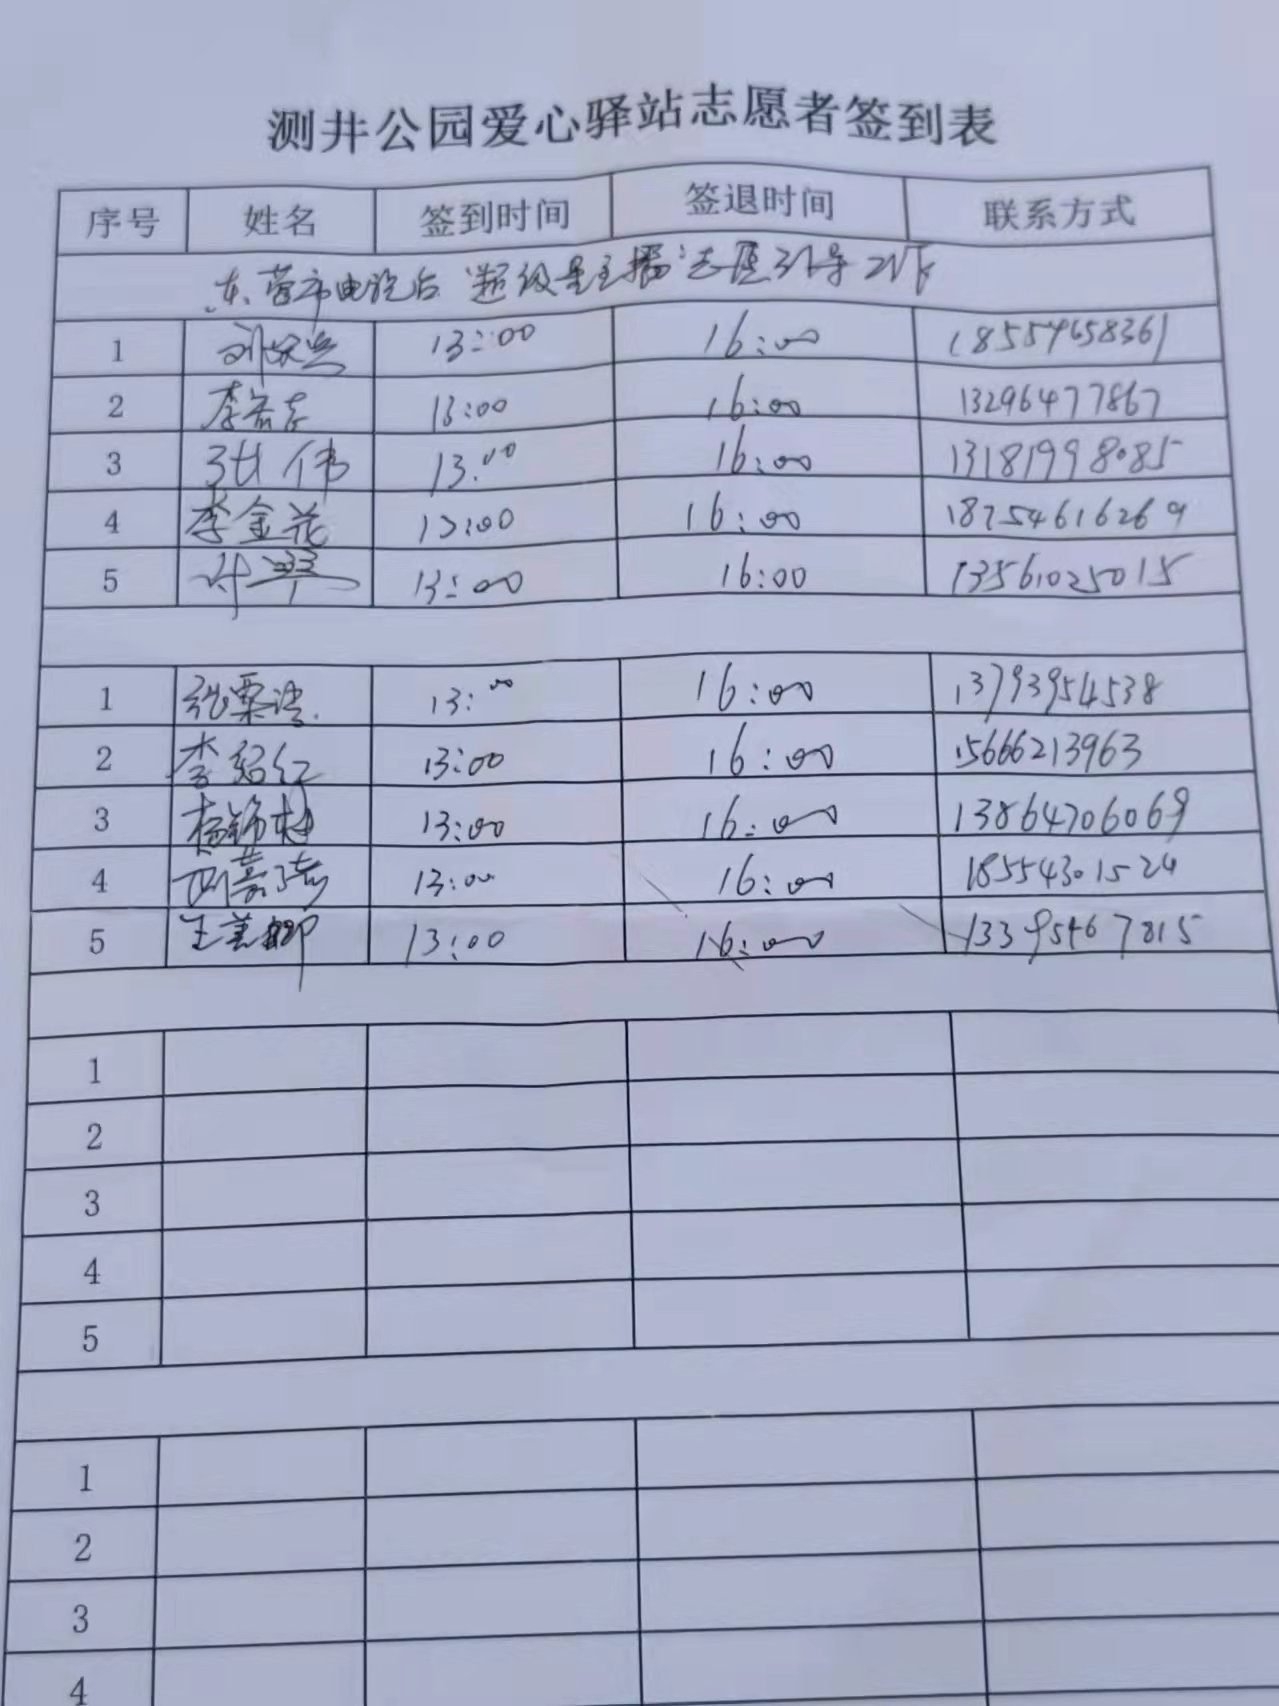 测井公园爱心驿站志愿者签到表
序号 姓名 签到时间 签退时间 联系方式
东营市电视台 超级星主播 志愿引导工作
1 13:00 16:00 18554658361
2 13:00 16:00 13296477867
3 张伟 13:00 16:00 13181998085
4 李金花 13:00 16:00 18754616269
5 许翠 13:00 16:00 13561025015
1 张栗 13:00 16:00 13793954538
2 李绍红 13:00 16:00 15666213963
3 杨锦 13:00 16:00 13864706069
4 13:00 16:00 18554301524
5 王美娜 13:00 16:00 13395467815
1
2
3
4
5
1
2
3
4